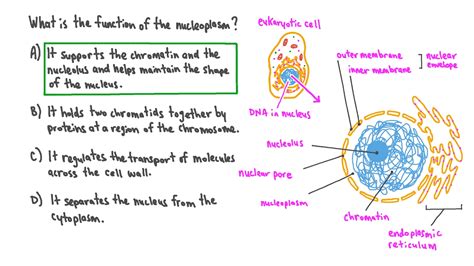 What is the function of the nucleoplasm?
A) It supports the chromatin and the
nucleolus and helps maintain the shape
of the nucleus.
B) It holds two chromatids together by
proteins at a region of the chromosome.
C) It regulates the transport of molecules
across the cell wall.
D) It separates the nucleus from the
cytoplasm.
eukaryotic cell
DNA in nucleus
outer membrane
inner membrane
nuclear
envelope
nucleolus
nuclear pore
nucleoplasm
chromatin
endoplasmic
reticulum